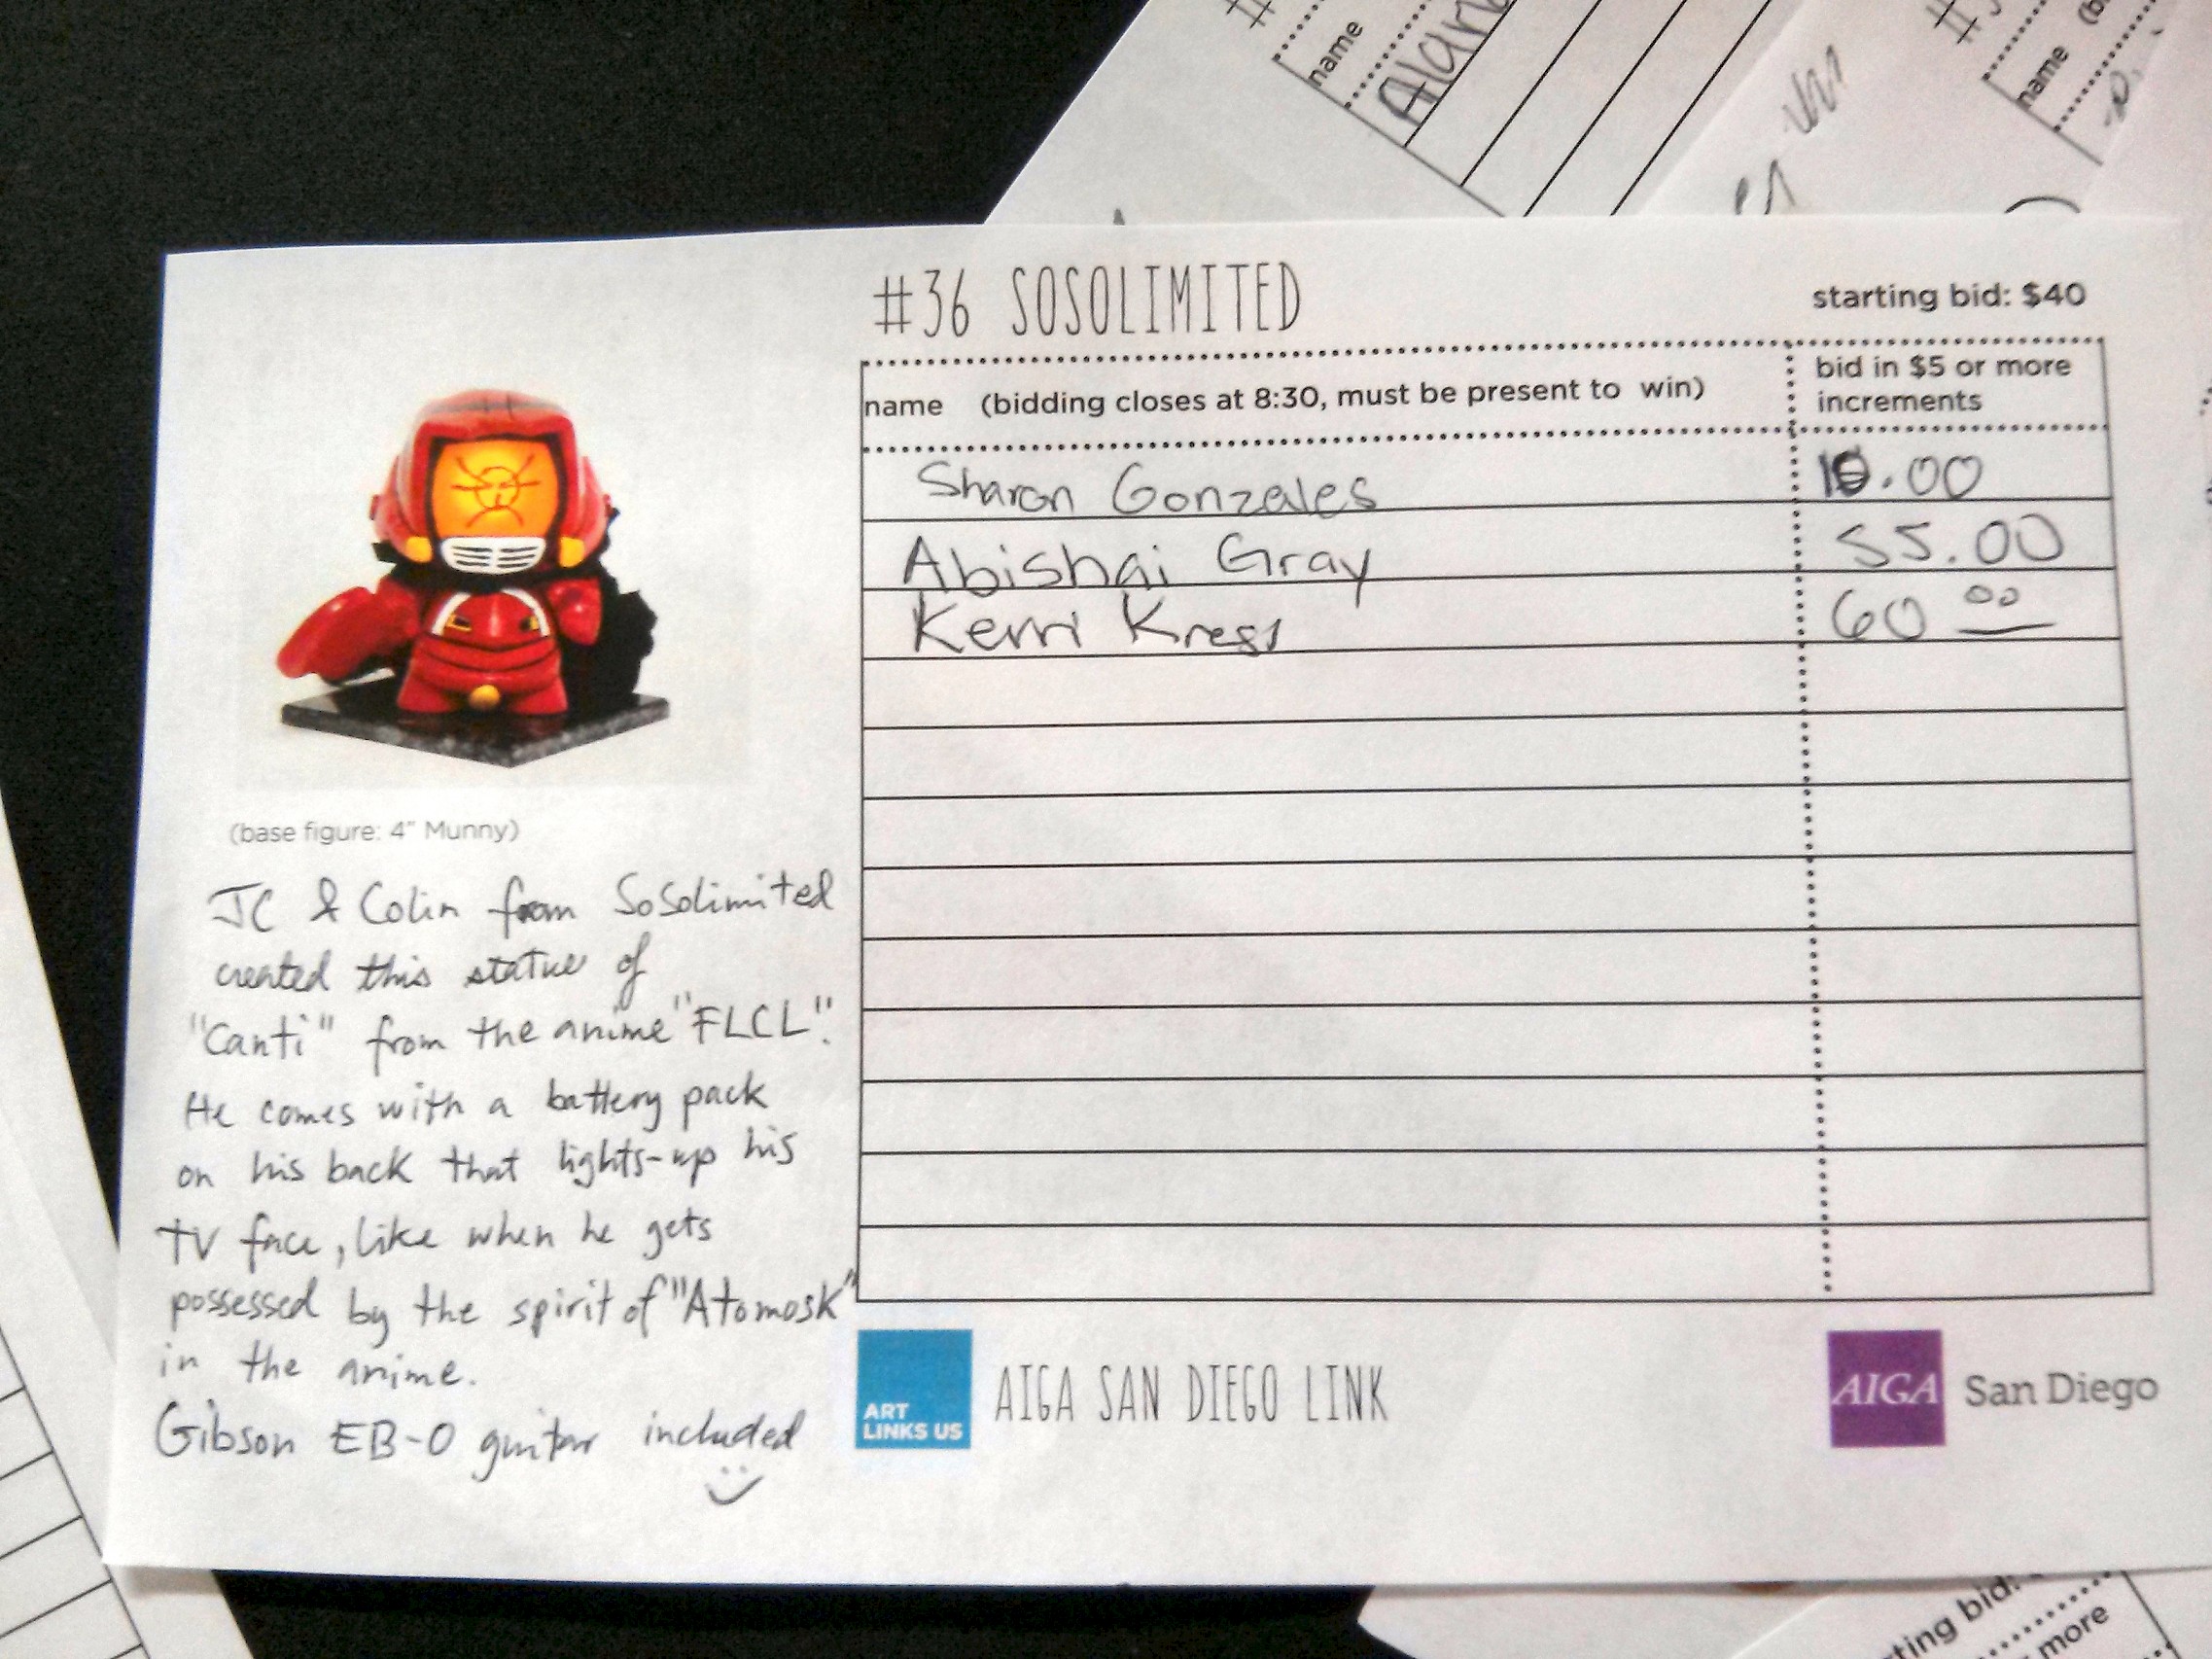 name
Alan
name
#36 SOSOLIMITED
starting bid: $40
name (bidding closes at 8:30, must be present to win)
bid in $5 or more
increments
Sharon Gonzales
.00
Abishai Gray 55.00
Kerri Kress 60 00
(base figure: 4" Munny)
JC & Colin from Sosolimited
created this statue of
"Canti" from the anime "FLCL".
He comes with a battery pack
on his back that lights-up his
TV face, like when he gets
possessed by the spirit of "Atomosk"
in the anime.
Gibson EB-0 guitar included
ART
LINKS US
AIGA SAN DIEGO LINK
AIGA San Diego
rting bid:
more